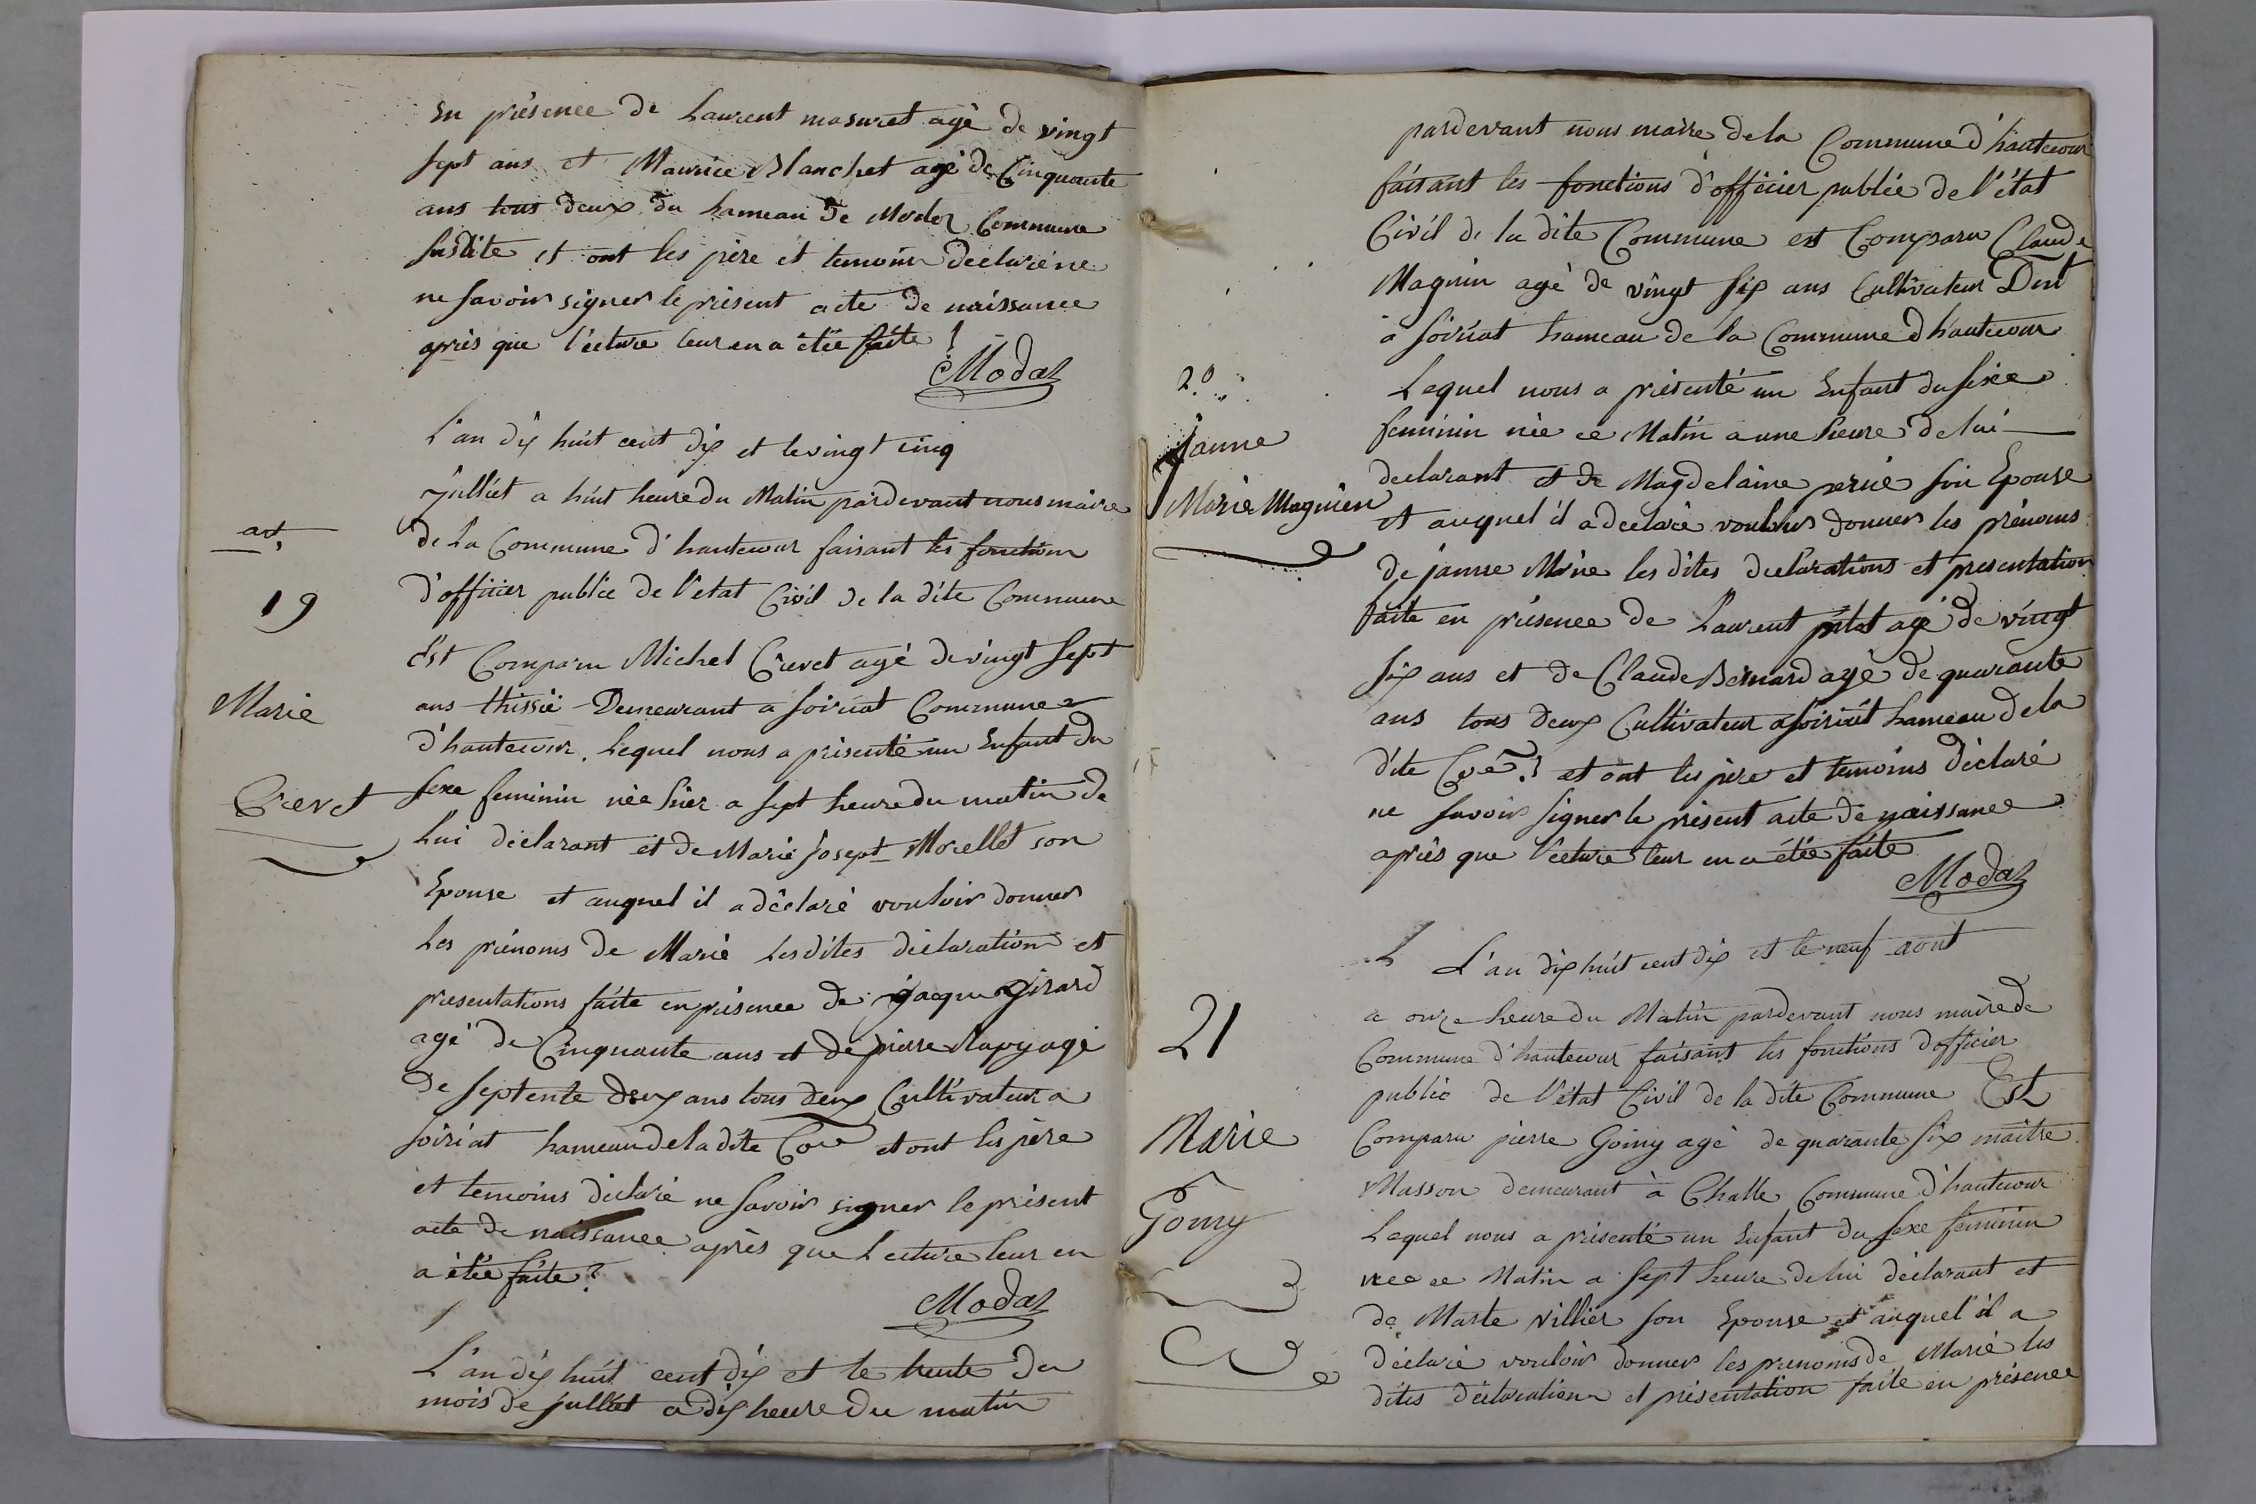 En présence de Laurent masuret agé de vingt
sept ans et Maurice Blanchet agé de Cinquante
ans tous deux du hameau de Commune
susdite et ont les père et temoin déclaré ne
ne savoir signer le présent acte de naissance
après que l'ecture leur en a étée faite
Modaz
L'an dix huit cent dix et le vingt cinq
juillet a huit heure du Matin pardevant nous maire
art,
de La Commune d'hautecour faisant les fonction
19
d'officier public de l'état Civil de la dite Commune
Est Comparu Michel Crevet agé de vingt sept
Marie
ans thissié Demeurant a soiriat Commune
d'hautecour. Lequel nous a présenté un Enfant du
Crevet
sexe feminin née hier a sept heure du matin de
Lui déclarant et de Marie josept Morellet son
Epouse et auquel il a déclaré vouloir donner
Les prénoms de Marie Lesdites déclaration et
presentations faite en présence de jaque Girard
agé de Cinquante ans et de pierre agé
de septente deux ans tous deux Cultivateur a
soiriat hameau de la dite Coe et ont les père
et temoins déclaré ne savoir signer le présent
acte de naissance après que Lecture leur en
a étée faite
Modaz
L'an dix huit cent dix et le trente du
mois de juillet a dix heure du matin
pardevant nous maire de la Commune d'hautecour
faisant les fonctions d'officier public de l'état
Civil de la dite Commune est Comparu Claude
Magnin agé de vingt six ans Cultivateur Dent
à soiriat hameau de la Commune d'hautecour
20
Lequel nous a présenté un Enfant du sexe
janne
feminin née ce Matin a une heure de lui
declarant et de Magdelaine perné son Epouse
Marie Magnien
et auquel il a declaré vouloir donner les prénoms
de janne Marie les dites declarations et presentation
faite en présence de Laurent pilat agé de vingt
six ans et de Claude Bernard agé de quarante
ans tous deux Cultivateur a soiriat hameau de la
dite Coe et ont les père et temoins déclaré
ne savoir signer le présent acte de naissance
après que l'ecture leur en a étée faite
Modaz
L L'an dix huit cent dix et le neuf aout
21
a onze heure du Matin pardevant nous maire de
Commune d'hautecour faisant les fonctions d'officier
public de l'état Civil de la dite Commune Est
Marie
Comparu pierre Goimy agé de quarante six maitre
Masson demeurant à Challe Commune d'hautecour
Gomy
Lequel nous a présenté un Enfant du sexe féminin
née ce Matin a sept heure de lui déclarant et
de Marte Villier son Epouse et auquel il a
déclaré vouloir donner les prenoms de Marie les
dites déclaration et présentation faite en présence